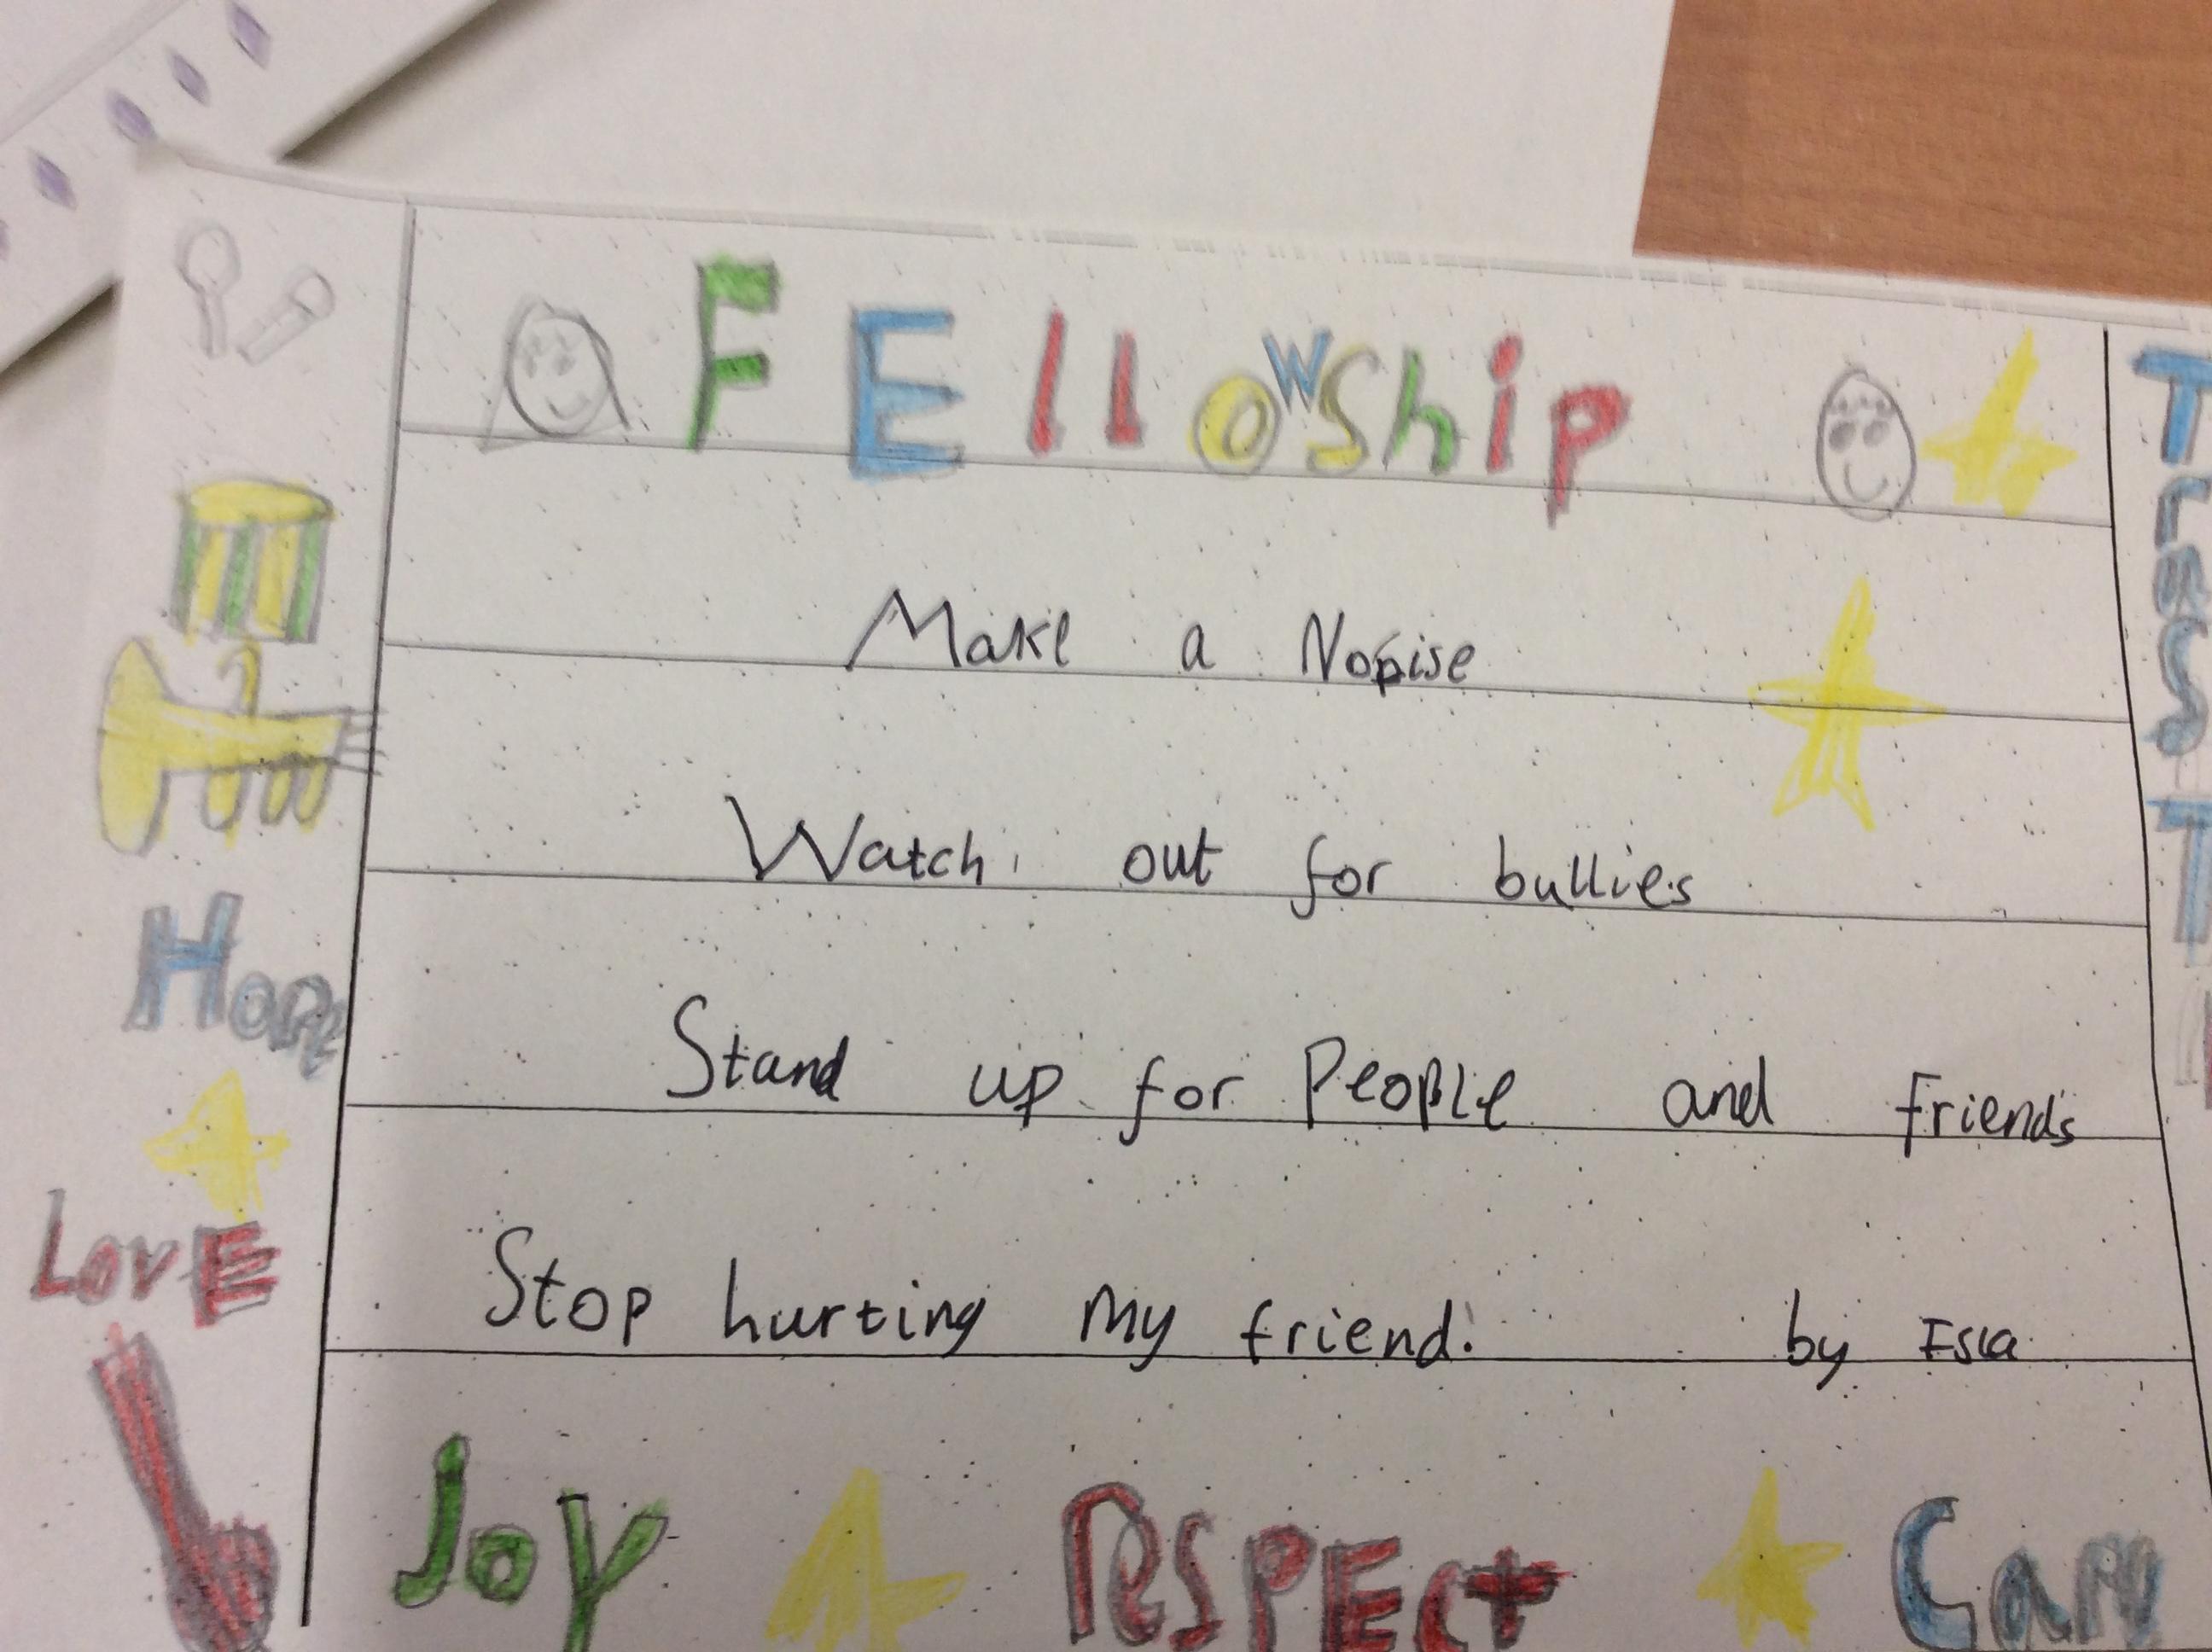 FEllowship
Make a Nopise
Watch out for bullies
Stand up for People and friends
Stop hurting my friend. by Isla
Hope
LovE
Joy RESPEct